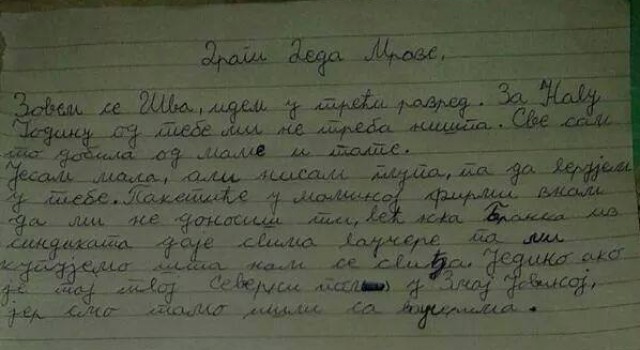 Драги Деда Мразе,
Зовем се Ива, идем у трећи разред. За Нову
Годину од тебе ми не треба ништа. Све сам
то добила од маме и тате.
Јесам мала, али нисам глупа, па да верујем
у тебе. Пакетиће у маминој фирми знам
да ми не доносиш ти, већ тка Бранка из
синдиката даје свима ваучере па ми
купујемо шта нам се свиђа. Једино ако
је тај твој Северни пол у Змај Јовиној,
јер смо тамо ишли са ваучерима.